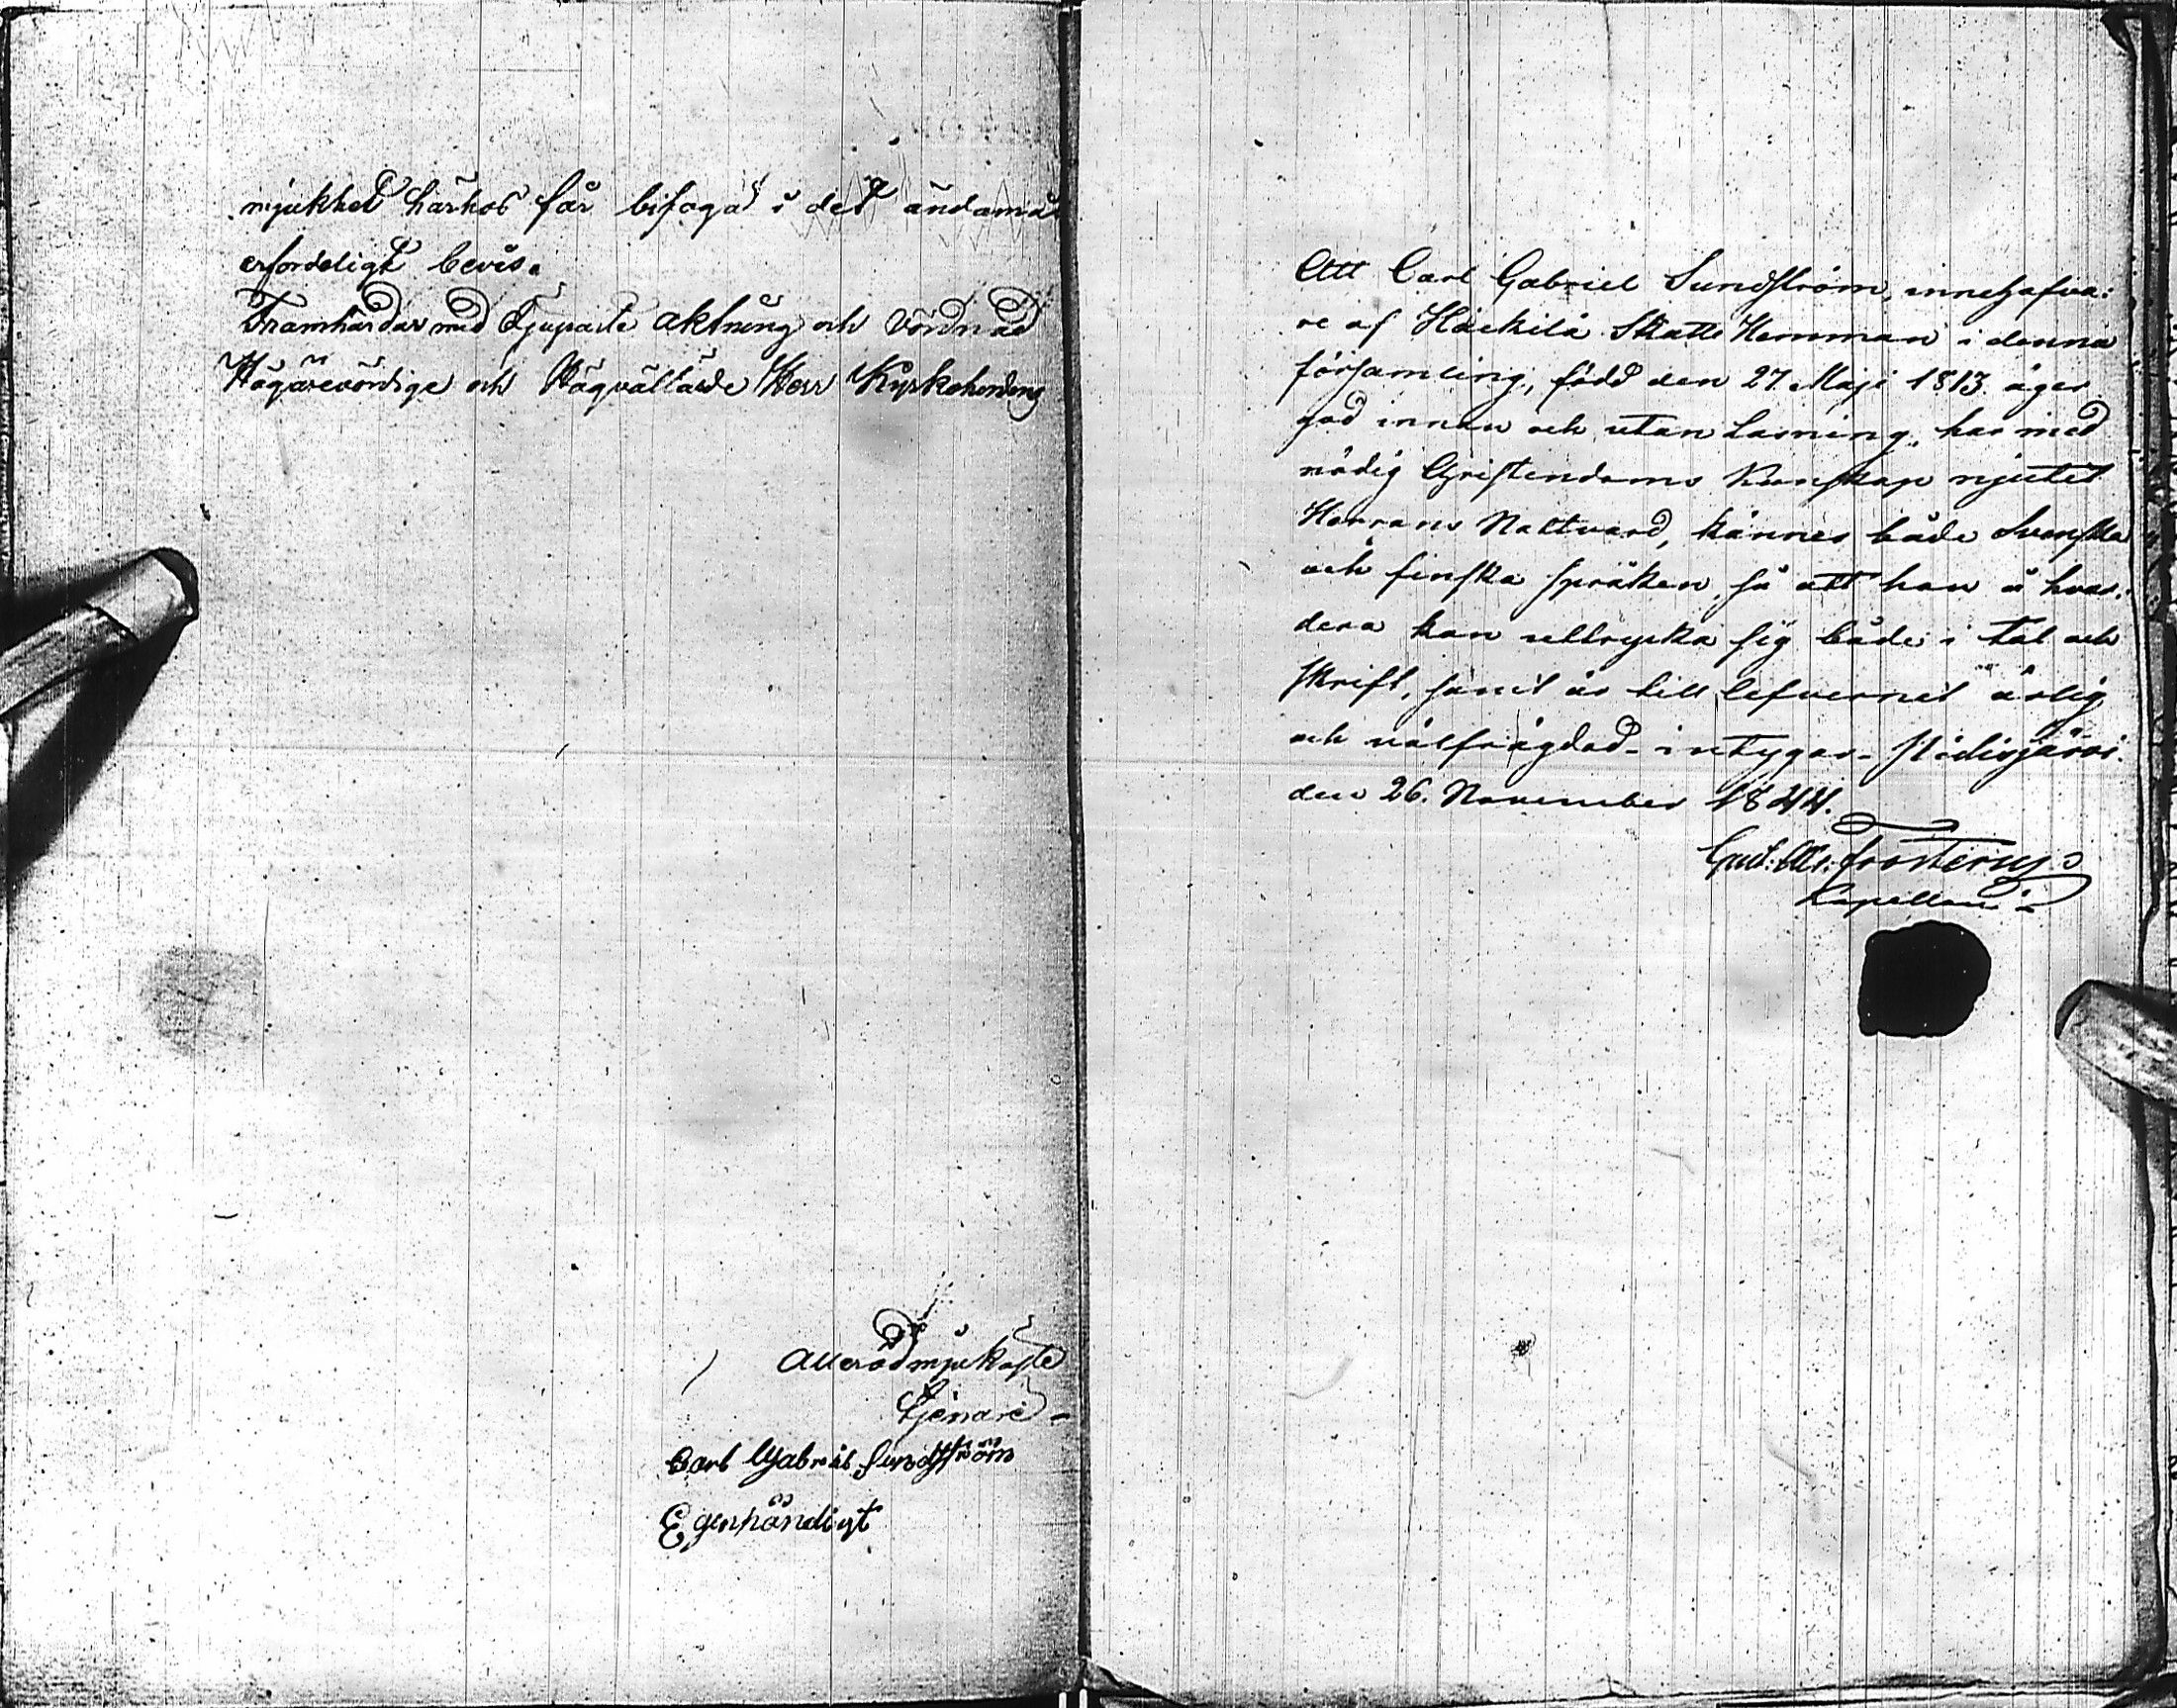 mjukhet härhos får bifoga i det ändamål
erfordeligt bevis.
Framhärdar med djupaste aktning och Vördnad
Högärevördige och Högvällärde Herr Kyrkoherdens
Allerödmjukaste
tjenare
Carl Gabriel Sundström
Egenhändigt
Att Carl Gabriel Sundström, innehafva:
re af Häckilä Skatte Hemman i denna
församling, född den 27 Maji 1813. äger
god innan och utan Läsning, har med
nödig Christendoms Kunskap njutit
Herrans Nattvard, kännes både Svenska
och finska språken, så att han å hvar:
dera kan uttrycka sig både i Tal och
skrift, samt är till lefvernet ärlig
och välfrägdad - intygar -
den 26. November 1844.
Gust: Ad: Frosterus
Kapellan